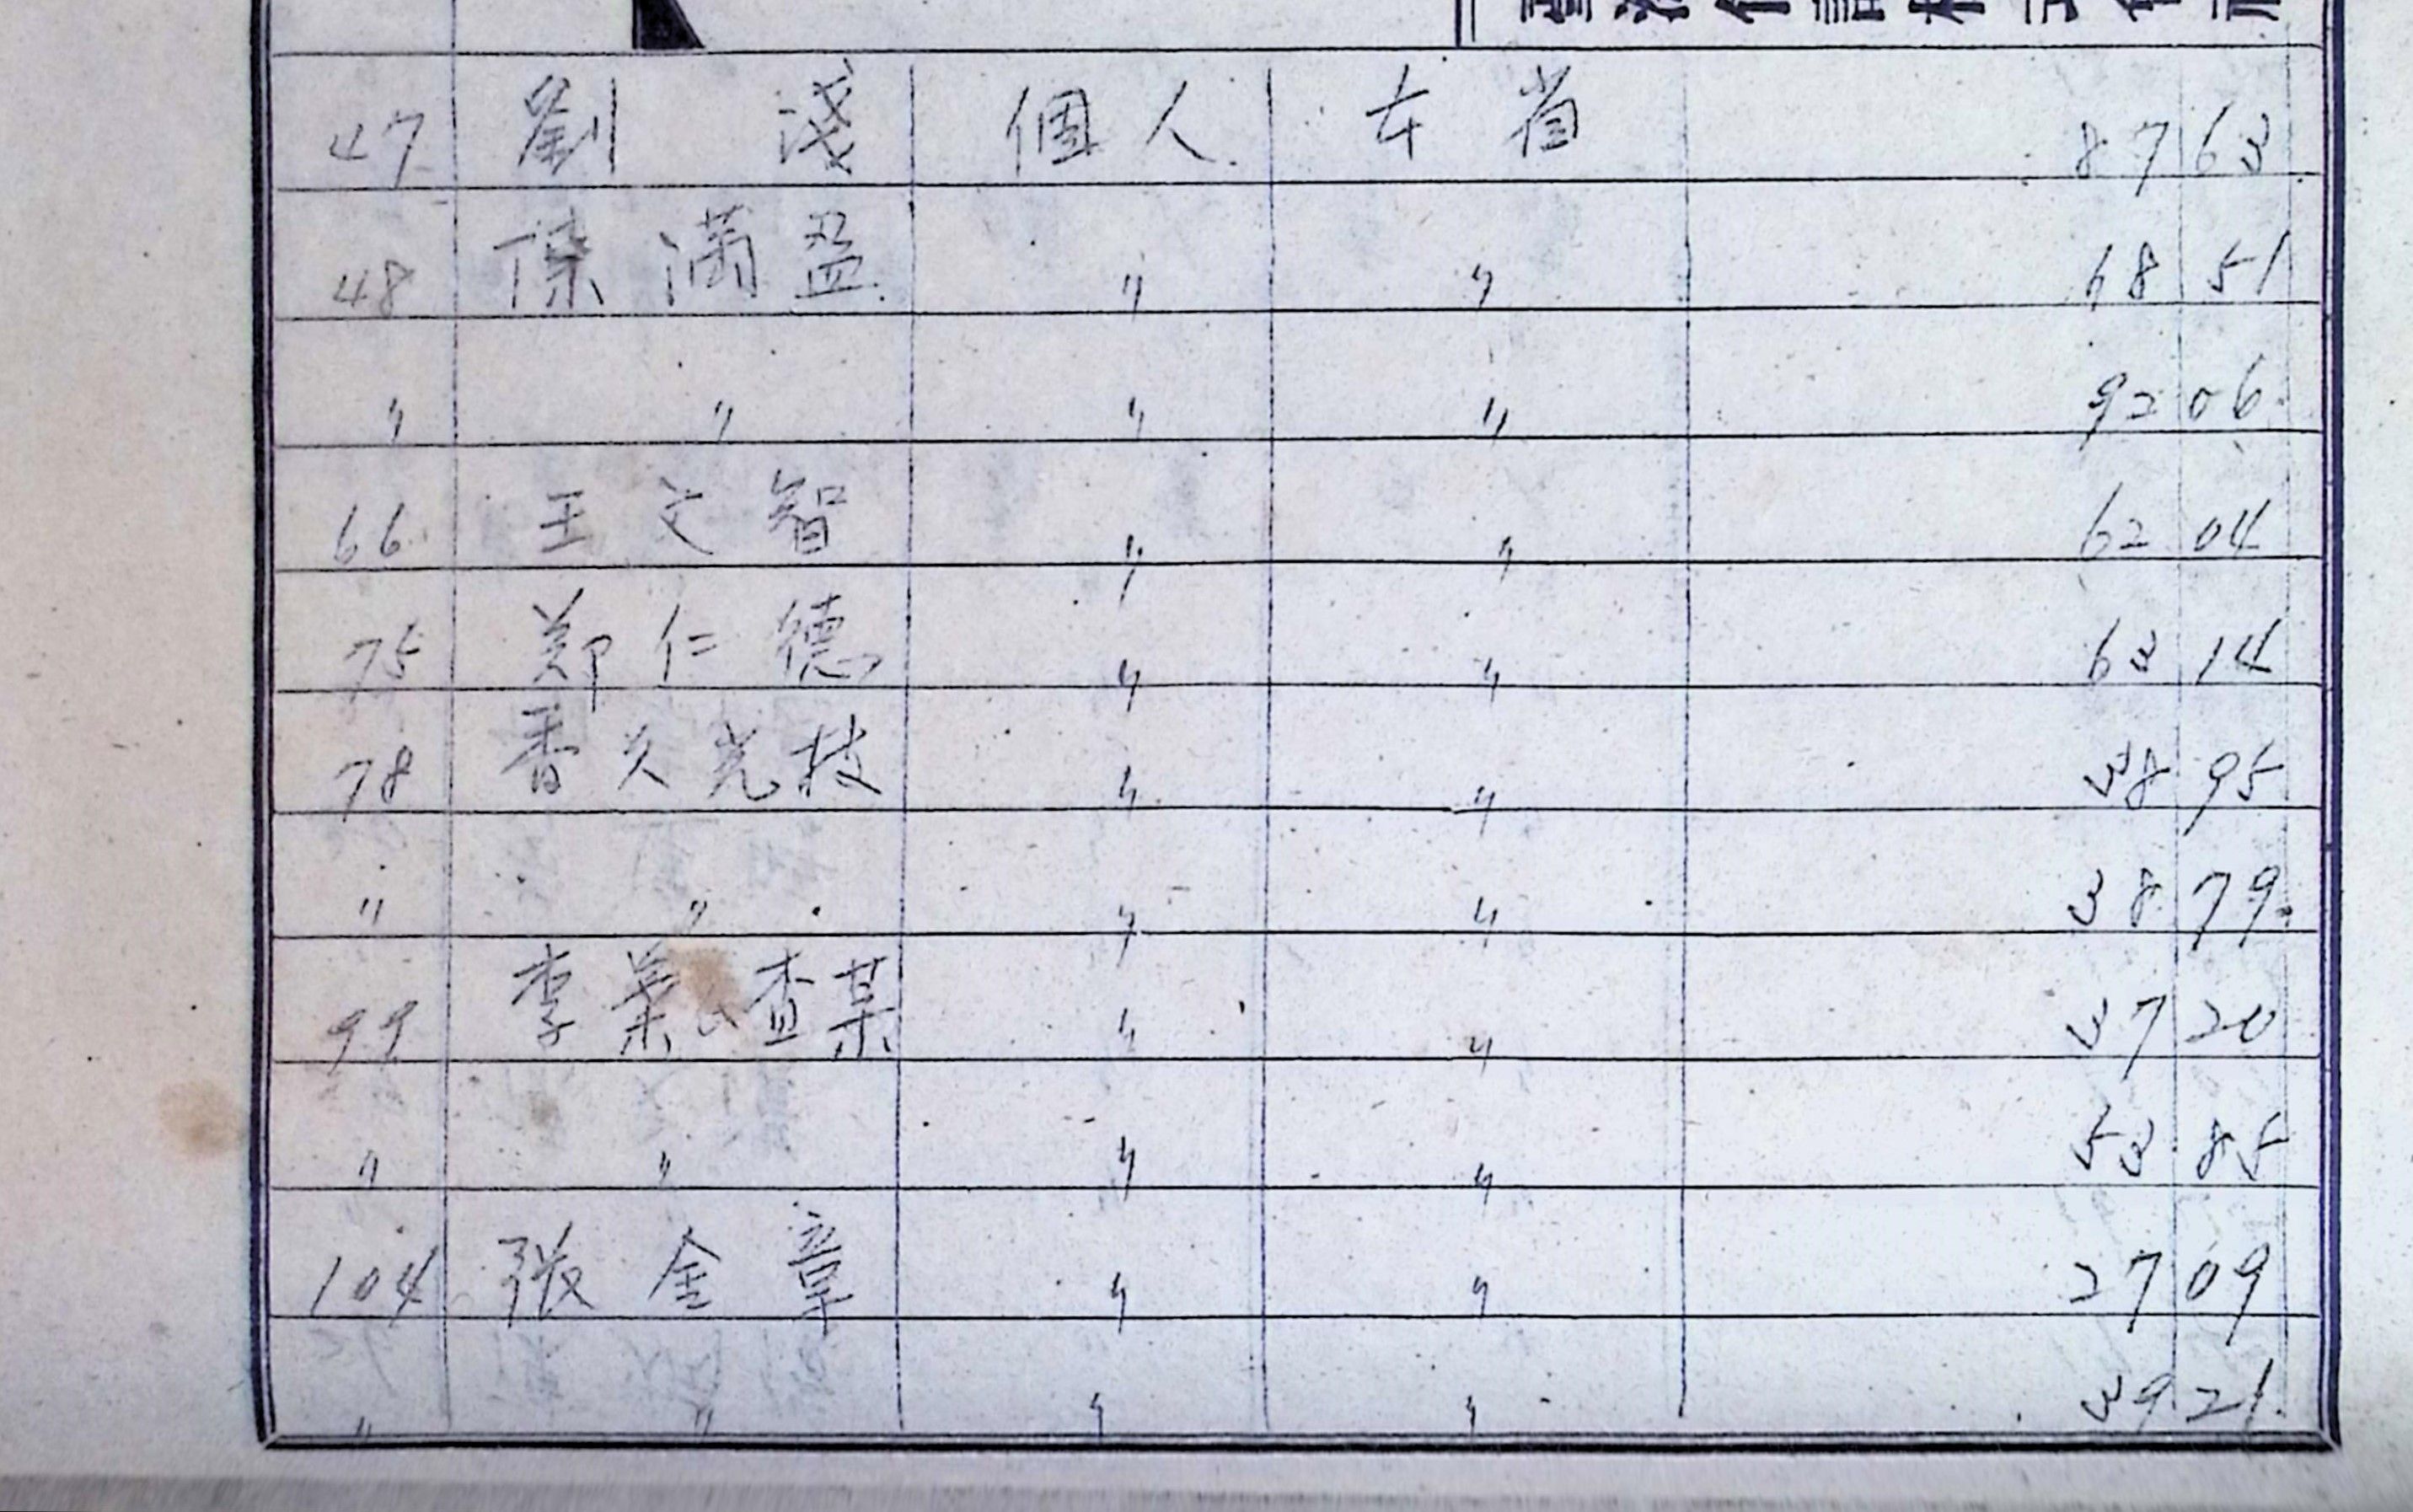 47 劉 淺 個人 本省 87 63
48 陳滿盈 〃 〃 68 51
〃 〃 〃 〃 92 06
66 王文智 〃 〃 62 04
75 鄭仁德 〃 〃 63 14
78 香久光枝 〃 〃 38 95
〃 〃 〃 〃 38 79
99 李葉氏查某 〃 〃 37 20
〃 〃 〃 〃 53 85
104 張金章 〃 〃 27 09
〃 〃 〃 〃 39 21